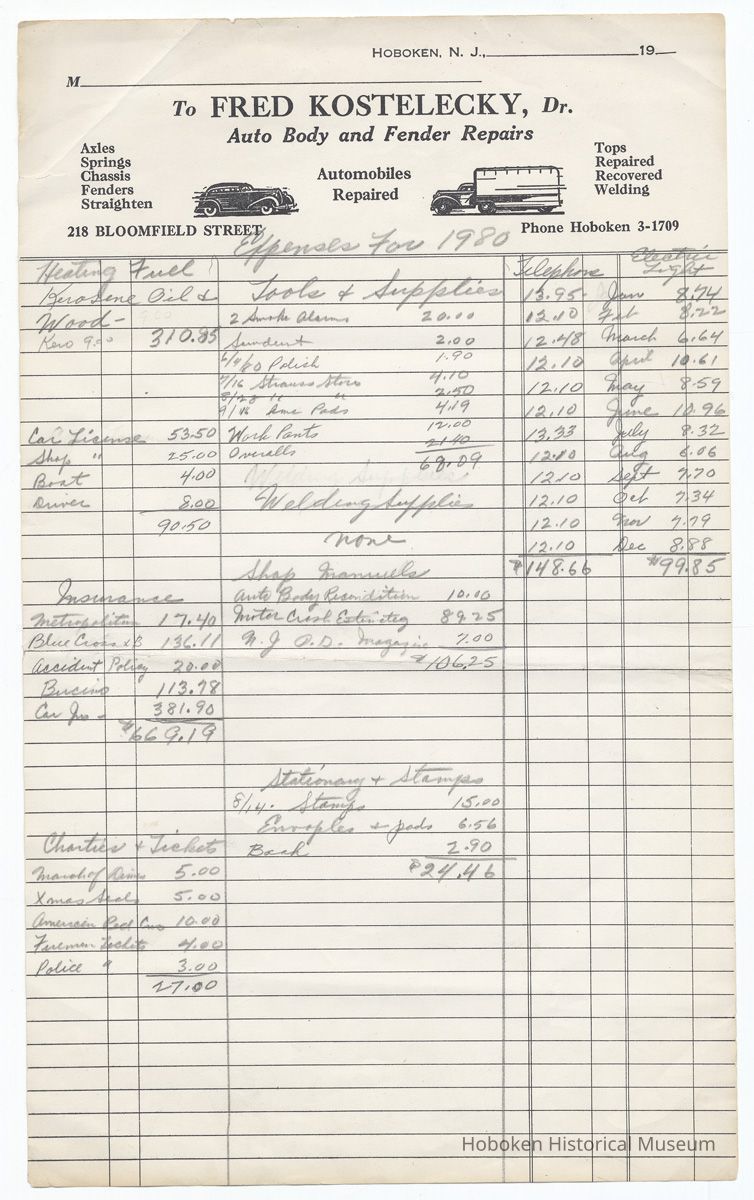 HOBOKEN, N. J., 19
M
To FRED KOSTELECKY, Dr.
Auto Body and Fender Repairs
Axles
Springs
Chassis
Fenders
Straighten
Automobiles
Repaired
Tops
Repaired
Recovered
Welding
218 BLOOMFIELD STREET
Phone Hoboken 3-1709
Expenses For 1980
Heating Fuel
Kerosene Oil &
Wood-
Kero 9.00 310.85
Car License 53.50
Shop " 25.00
Boat 4.00
Driver 8.00
90.50
Insurance
Metropolitan 17.40
Blue Cross & B 136.11
Accident Policy 20.00
113.78
Car Ins - 381.90
$669.19
Charties & Tickets
March of Dimes 5.00
Xmas Seals 5.00
American Red Cross 10.00
Firemen Tickets 4.00
Police " 3.00
27.00
Tools & Supplies
2 Smoke Alarms 20.00
2.00
6/9/80 Polish 1.90
7/16 Strauss Store 4.10
8/23 " " 2.50
9/16 Pads 4.19
Work Pants 12.00
Overalls 21.40
68.09
Welding Supplies
none
Shop Manuels
Auto Body Recondition 10.00
Motor Crash Estimating 89.25
N.J Magazine 7.00
$106.25
Stationary & Stamps
8/14. Stamps 15.00
Envoples & pads 6.56
Book 2.90
$24.46
Telephone
13.95
12.10
12.48
12.10
12.10
12.10
13.33
12.10
12.10
12.10
12.10
12.10
$148.66
Electric
Light
Jan 8.74
Feb 8.22
March 6.64
April 10.61
May 8.59
June 10.96
July 8.32
Aug 6.06
Sept 7.70
Oct 7.34
Nov 7.79
Dec 8.88
$99.85
Hoboken Historical Museum